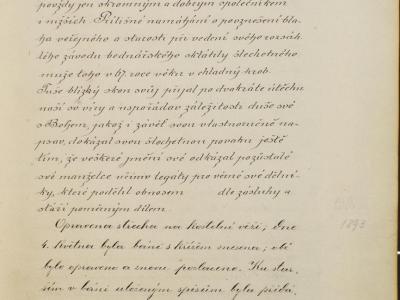 povždy jen skromným a dobrým společníkem
i nižších. Přílišné namáhání o povznešení bla-
ha veřejného a starosti při vedení svého rozsáh-
lého závodu bednářského sklátily šlechetného
muže toho v 67 roce věku v chladný hrob.
Tuše blízký skon svůj přijal po dvakráte útěchu
naší sv víry a uspořádav záležitosti duše své
s Bohem, jakož i závěť svou vlastnoručně na-
psav, dokázal svou šlechetnou povahu ještě
tím, že veškeré jmění své odkázal pozůstalé
své manželce učiniv legáty pro věrné své dělní-
ky, které podělil obnosem dle zásluhy a
stáří poměrným dílem.
Opravena střecha na kostelní věži; dne
4. května byla báně s křížem snesena; obě
bylo opraveno a znovu pozlaceno. Ku star-
ším v báni uloženým spisům byla přidá-
1893